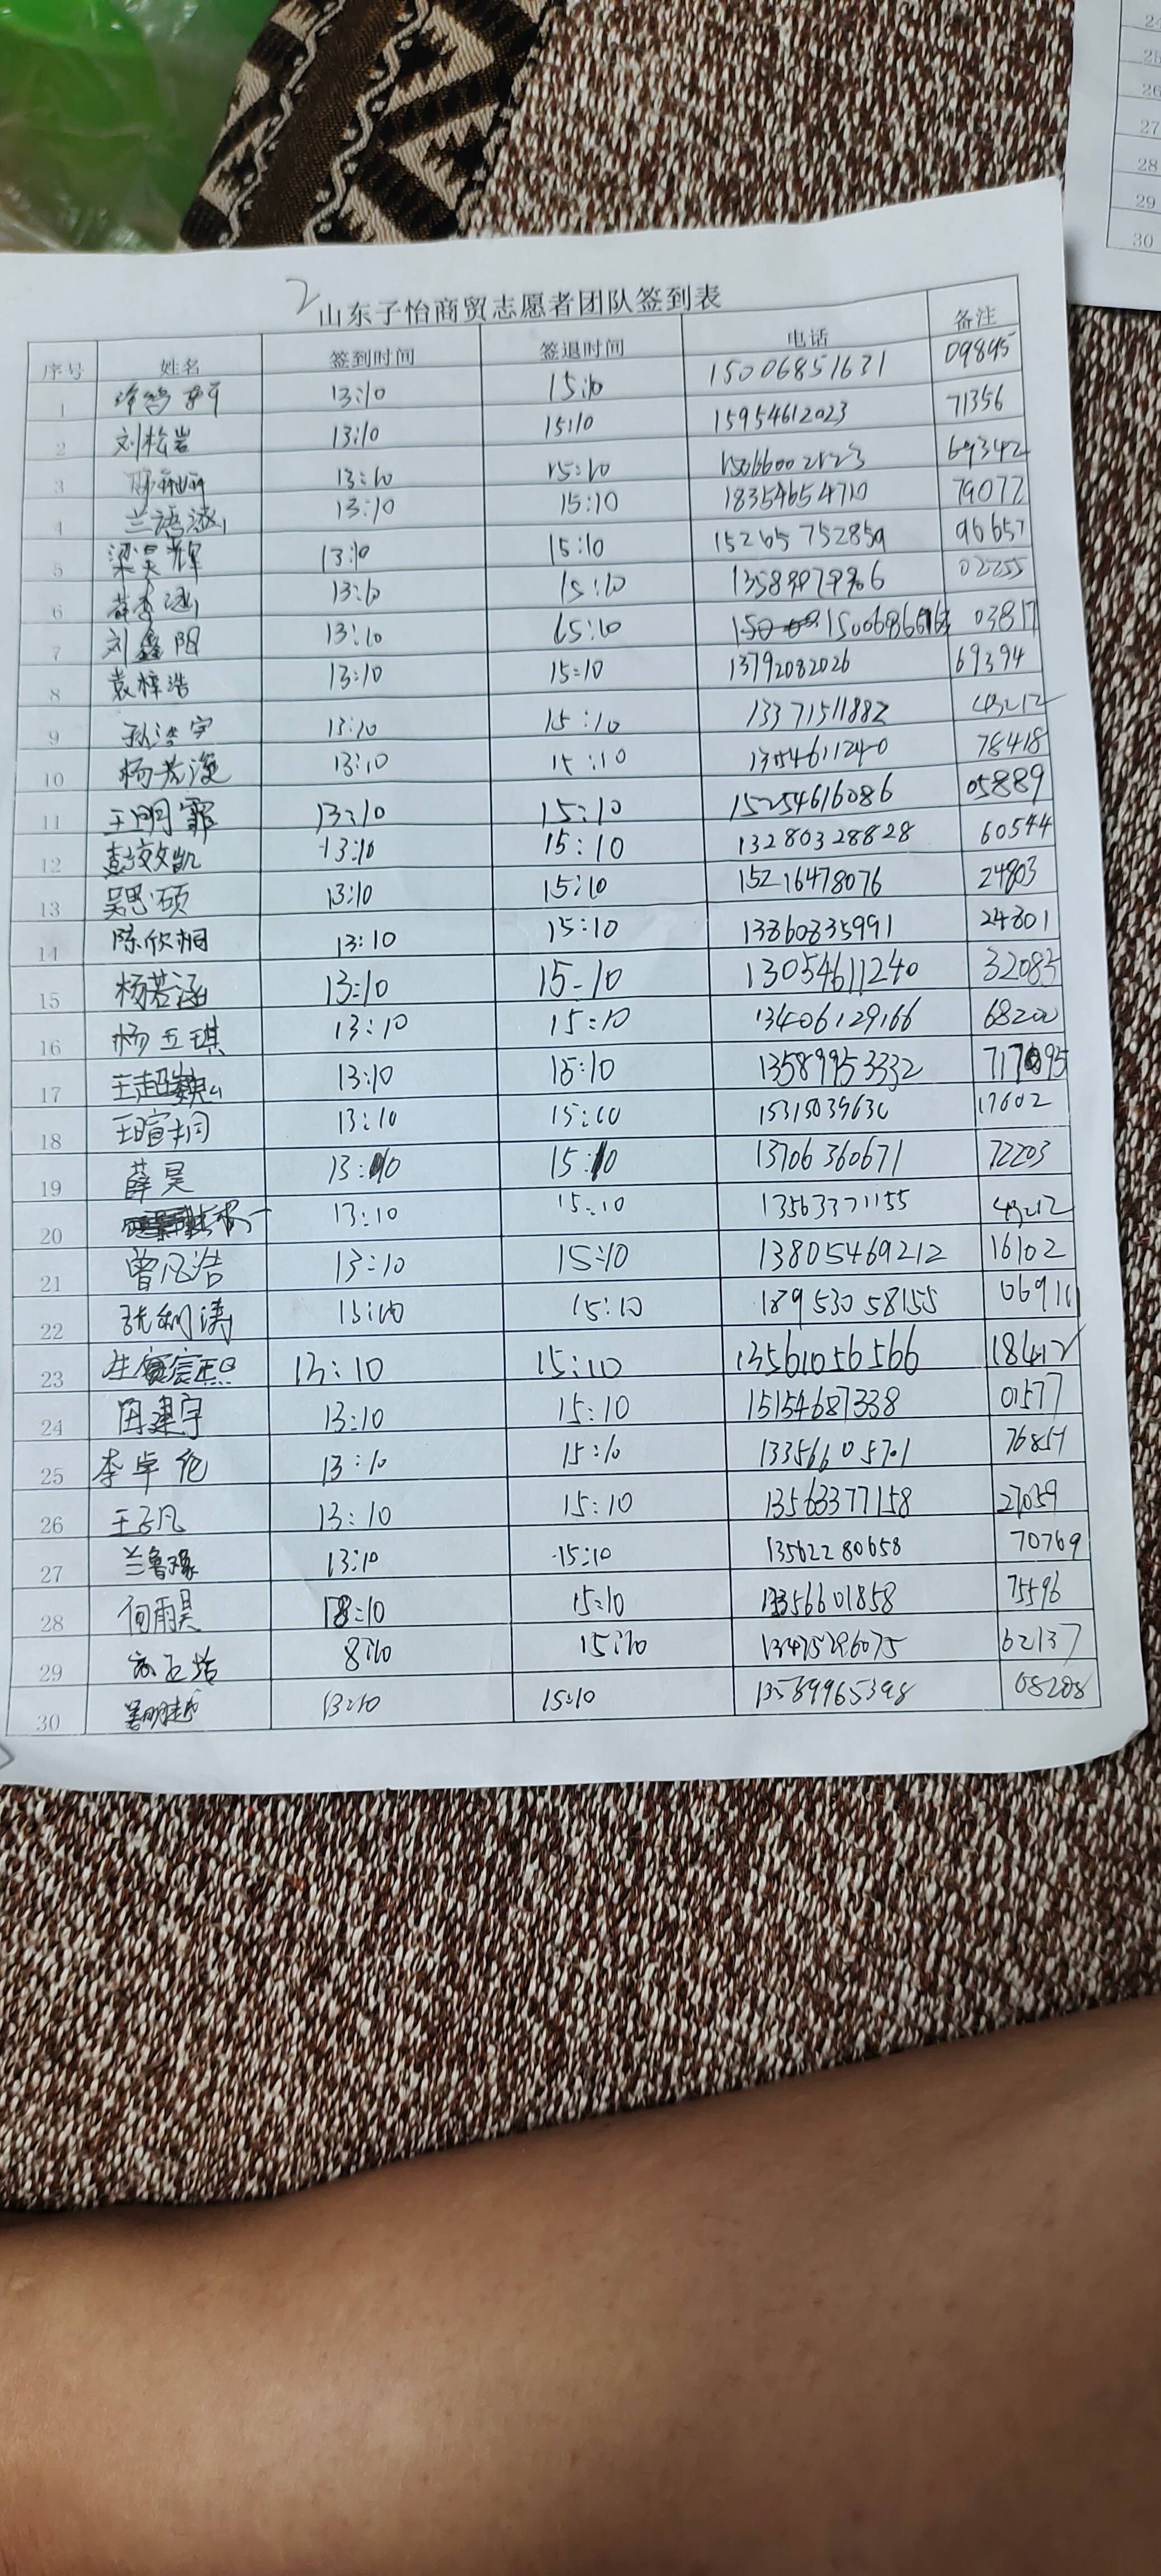 2
山东子怡商贸志愿者团队签到表
序号 姓名 签到时间 签退时间 电话 备注
1 13:10 15:10 15006851631 09845
2 刘松岩 13:10 15:10 15954612023 71356
3 13:10 15:10 69342
4 兰语涵 13:10 15:10 18354654710 79077
5 梁昊辉 13:10 15:10 15265752859 96657
6 13:10 15:10 02255
7 刘鑫阳 13:10 15:10 03817
8 袁梓浩 13:10 15:10 13792082026 69394
9 孙浩宇 13:10 15:10 13371511882 43212
10 杨若涵 13:10 15:10 13054611240 78418
11 王明霏 13:10 15:10 15254616086 05889
12 彭效凯 13:10 15:10 13280328828 60544
13 吴思硕 13:10 15:10 15216478076 24803
14 陈欣桐 13:10 15:10 13860835991 24801
15 杨若涵 13:10 15-10 13054611240 32085
16 杨立琪 13:10 15:10 13406129166 68200
17 王超巍 13:10 15:10 13589953332 717695
18 王暄桐 13:10 15:10 15315039630 17602
19 薛昊 13:10 15:10 13706360671 72203
20 13:10 15:10 13563371155 43212
21 曾凡浩 13:10 15:10 13805469212 16102
22 13:10 15:10 18953058155 06911
23 13:10 15:10 13561056566 18412
24 田建宇 13:10 15:10 15154687338 01577
25 李卓伦 13:10 15:10 13356605701 76854
26 王子凡 13:10 15:10 13563377158 27059
27 兰鲁豫 13:10 15:10 13562280658 70769
28 何雨昊 13:10 15:10 13356601858 75596
29 8:10 15:10 13475296075 62137
30 13:10 15:10 13589965398 08208
24
25
26
27
28
29
30